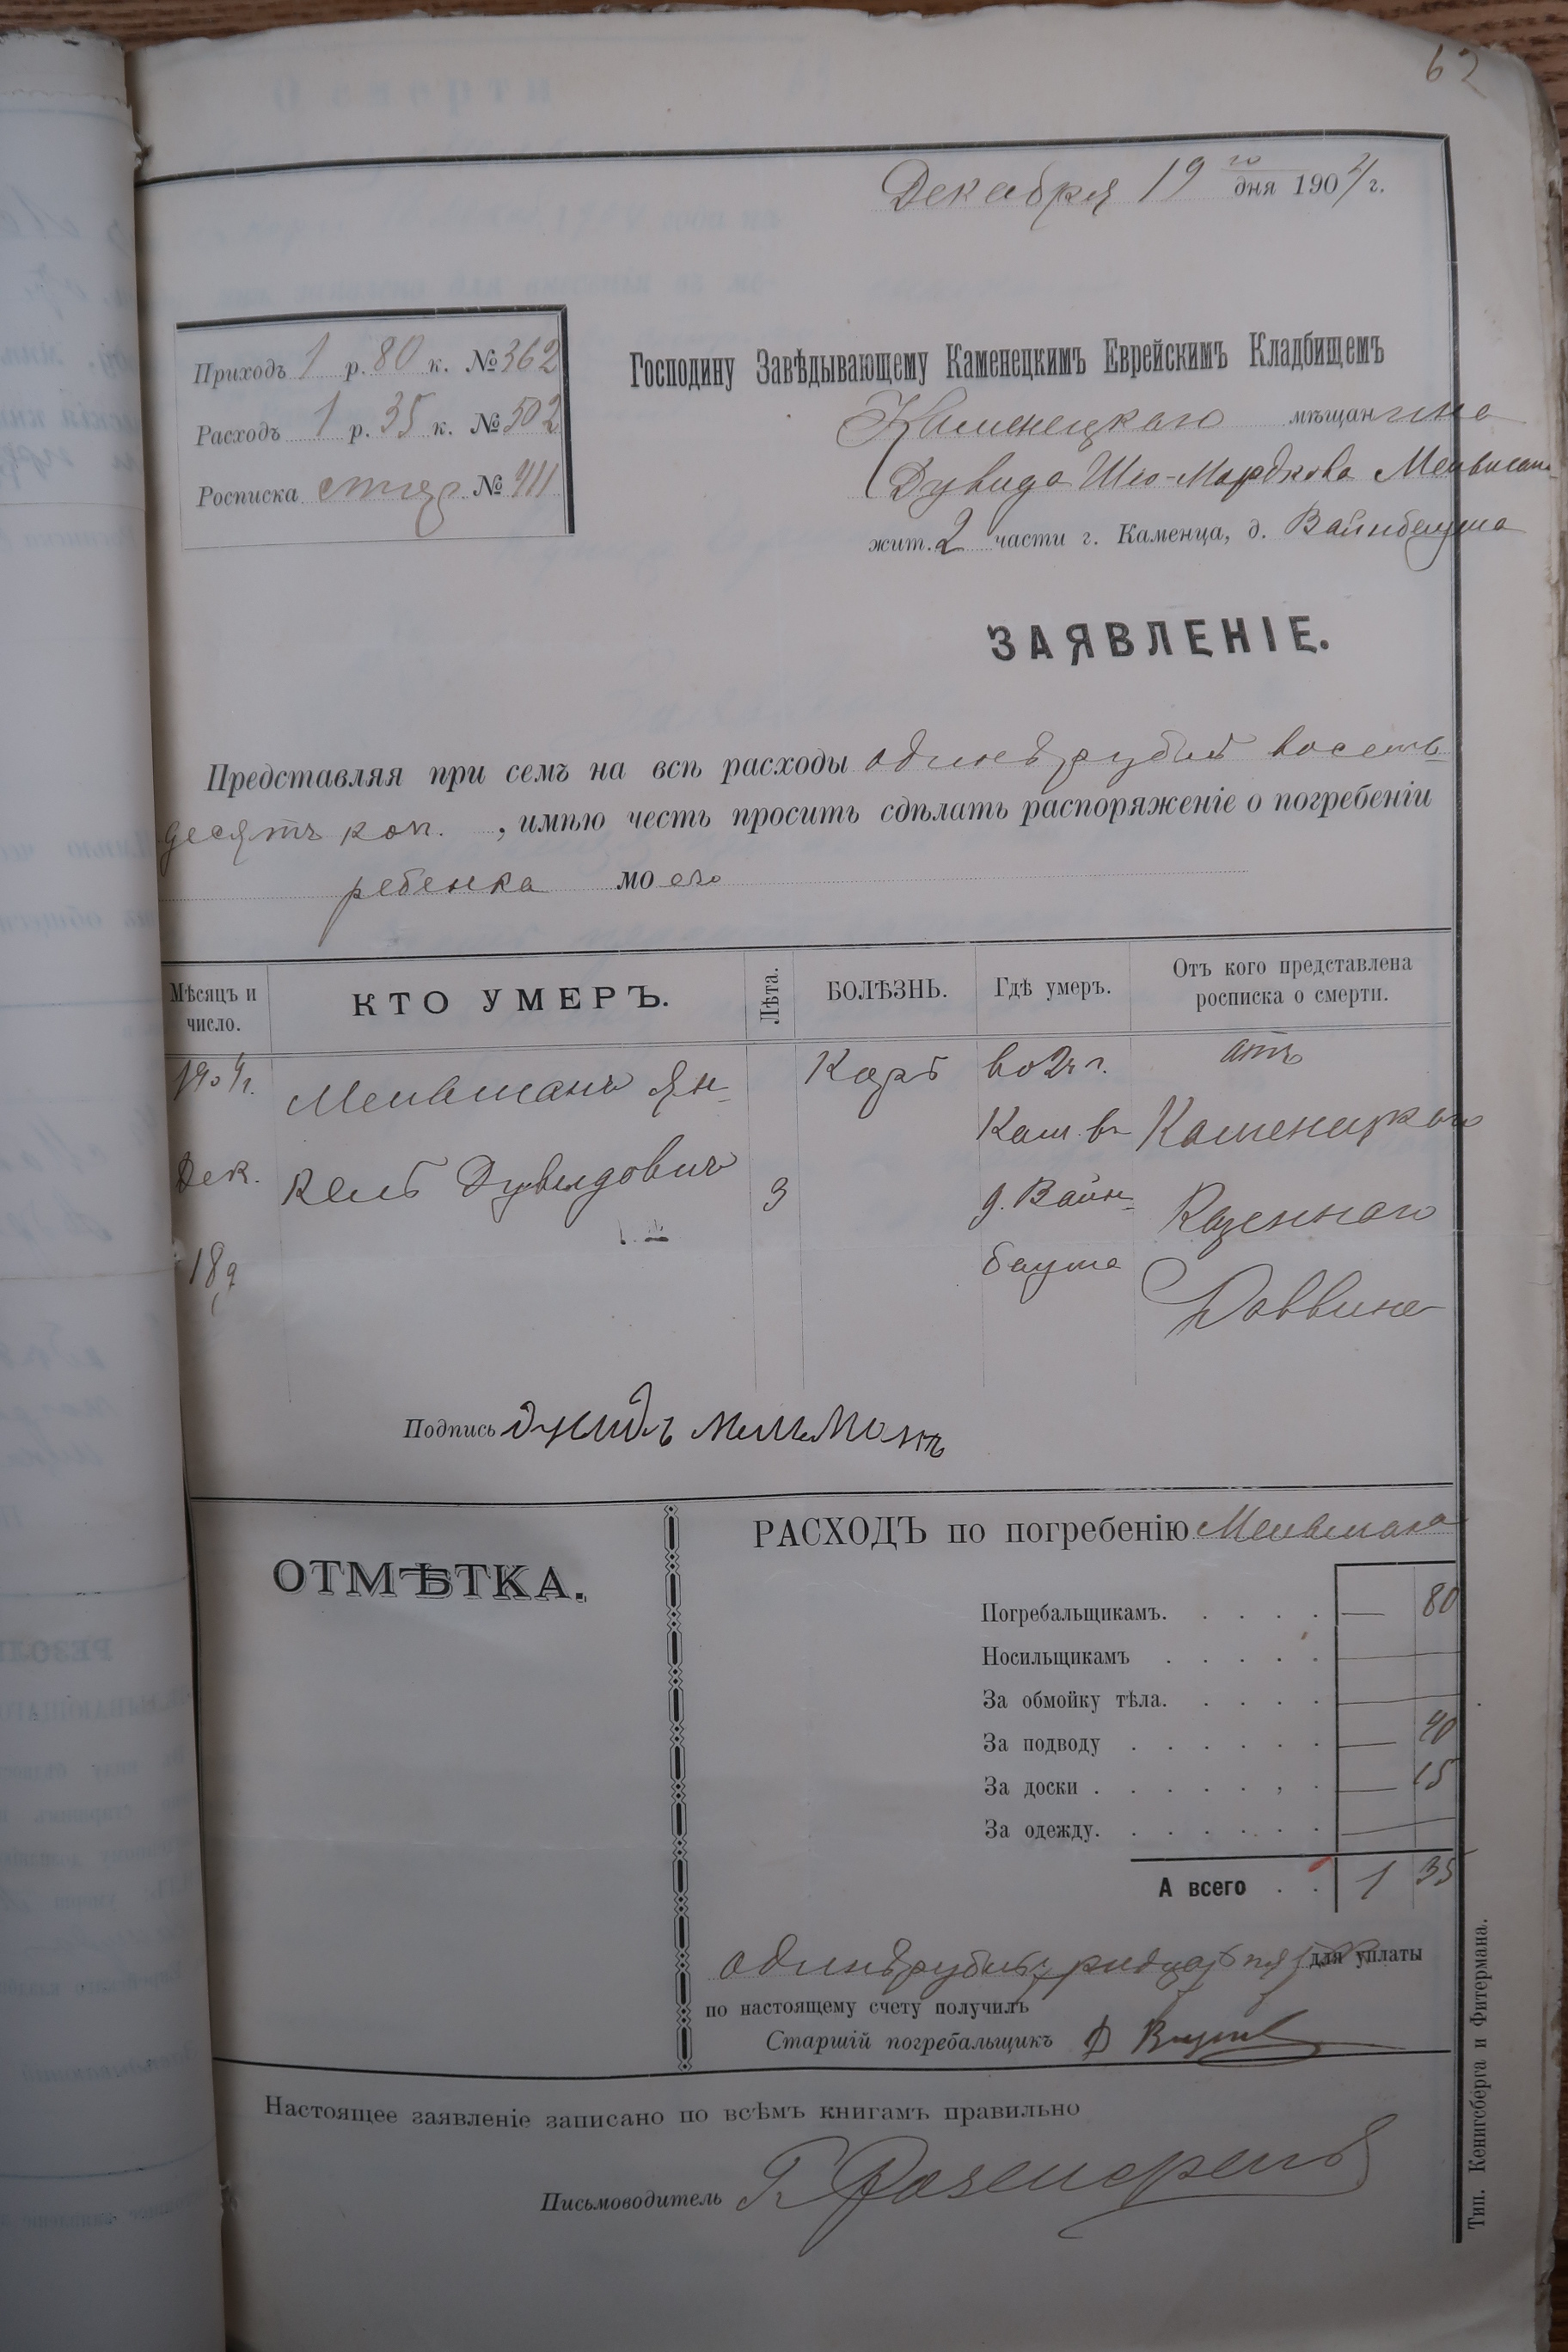 62
Декабря 19 го дня 1904 г.
Приходъ 1 р. 80 к. № 362
Расходъ 1 р. 35 к. № 502
Росписка № 411
Господину Завѣдывающему Каменецкимъ Еврейскимъ Кладбищемъ
Каменецкаго мѣщанина
Дувида Шю-Мордкова
жит. 2 части г. Каменца, д. Вайнбаума
ЗАЯВЛЕНІЕ.
Представляя при семъ на всѣ расходы одинъ рубль восемь-
десятъ коп. , имѣю честь просить сдѣлать распоряженіе о погребеніи
ребенка моего
Мѣсяцъ и число.
КТО УМЕРЪ.
Лѣта.
БОЛѢЗНЬ.
Гдѣ умеръ.
Отъ кого представлена росписка о смерти.
1904 г. Дек. 18 д
Мельманъ Ян-
кель Дувидовичъ
3
Корь
во 2 ч г.
Кам. въ
д. Вайн-
баума
отъ
Каменецкаго
Казеннаго
Раввина
Подпись
РАСХОДЪ по погребенію Мельмана
ОТМѢТКА.
Погребальщикамъ. — 80
Носильщикамъ
За обмойку тѣла.
За подводу — 40
За доски — 15
За одежду.
А всего 1 35
одинъ рубль тридцать пять для уплаты
по настоящему счету получилъ
Старшій погребальщикъ
Настоящее заявленіе записано по всѣмъ книгамъ правильно
Письмоводитель
Тип. Кенигсберга и Фитермана.